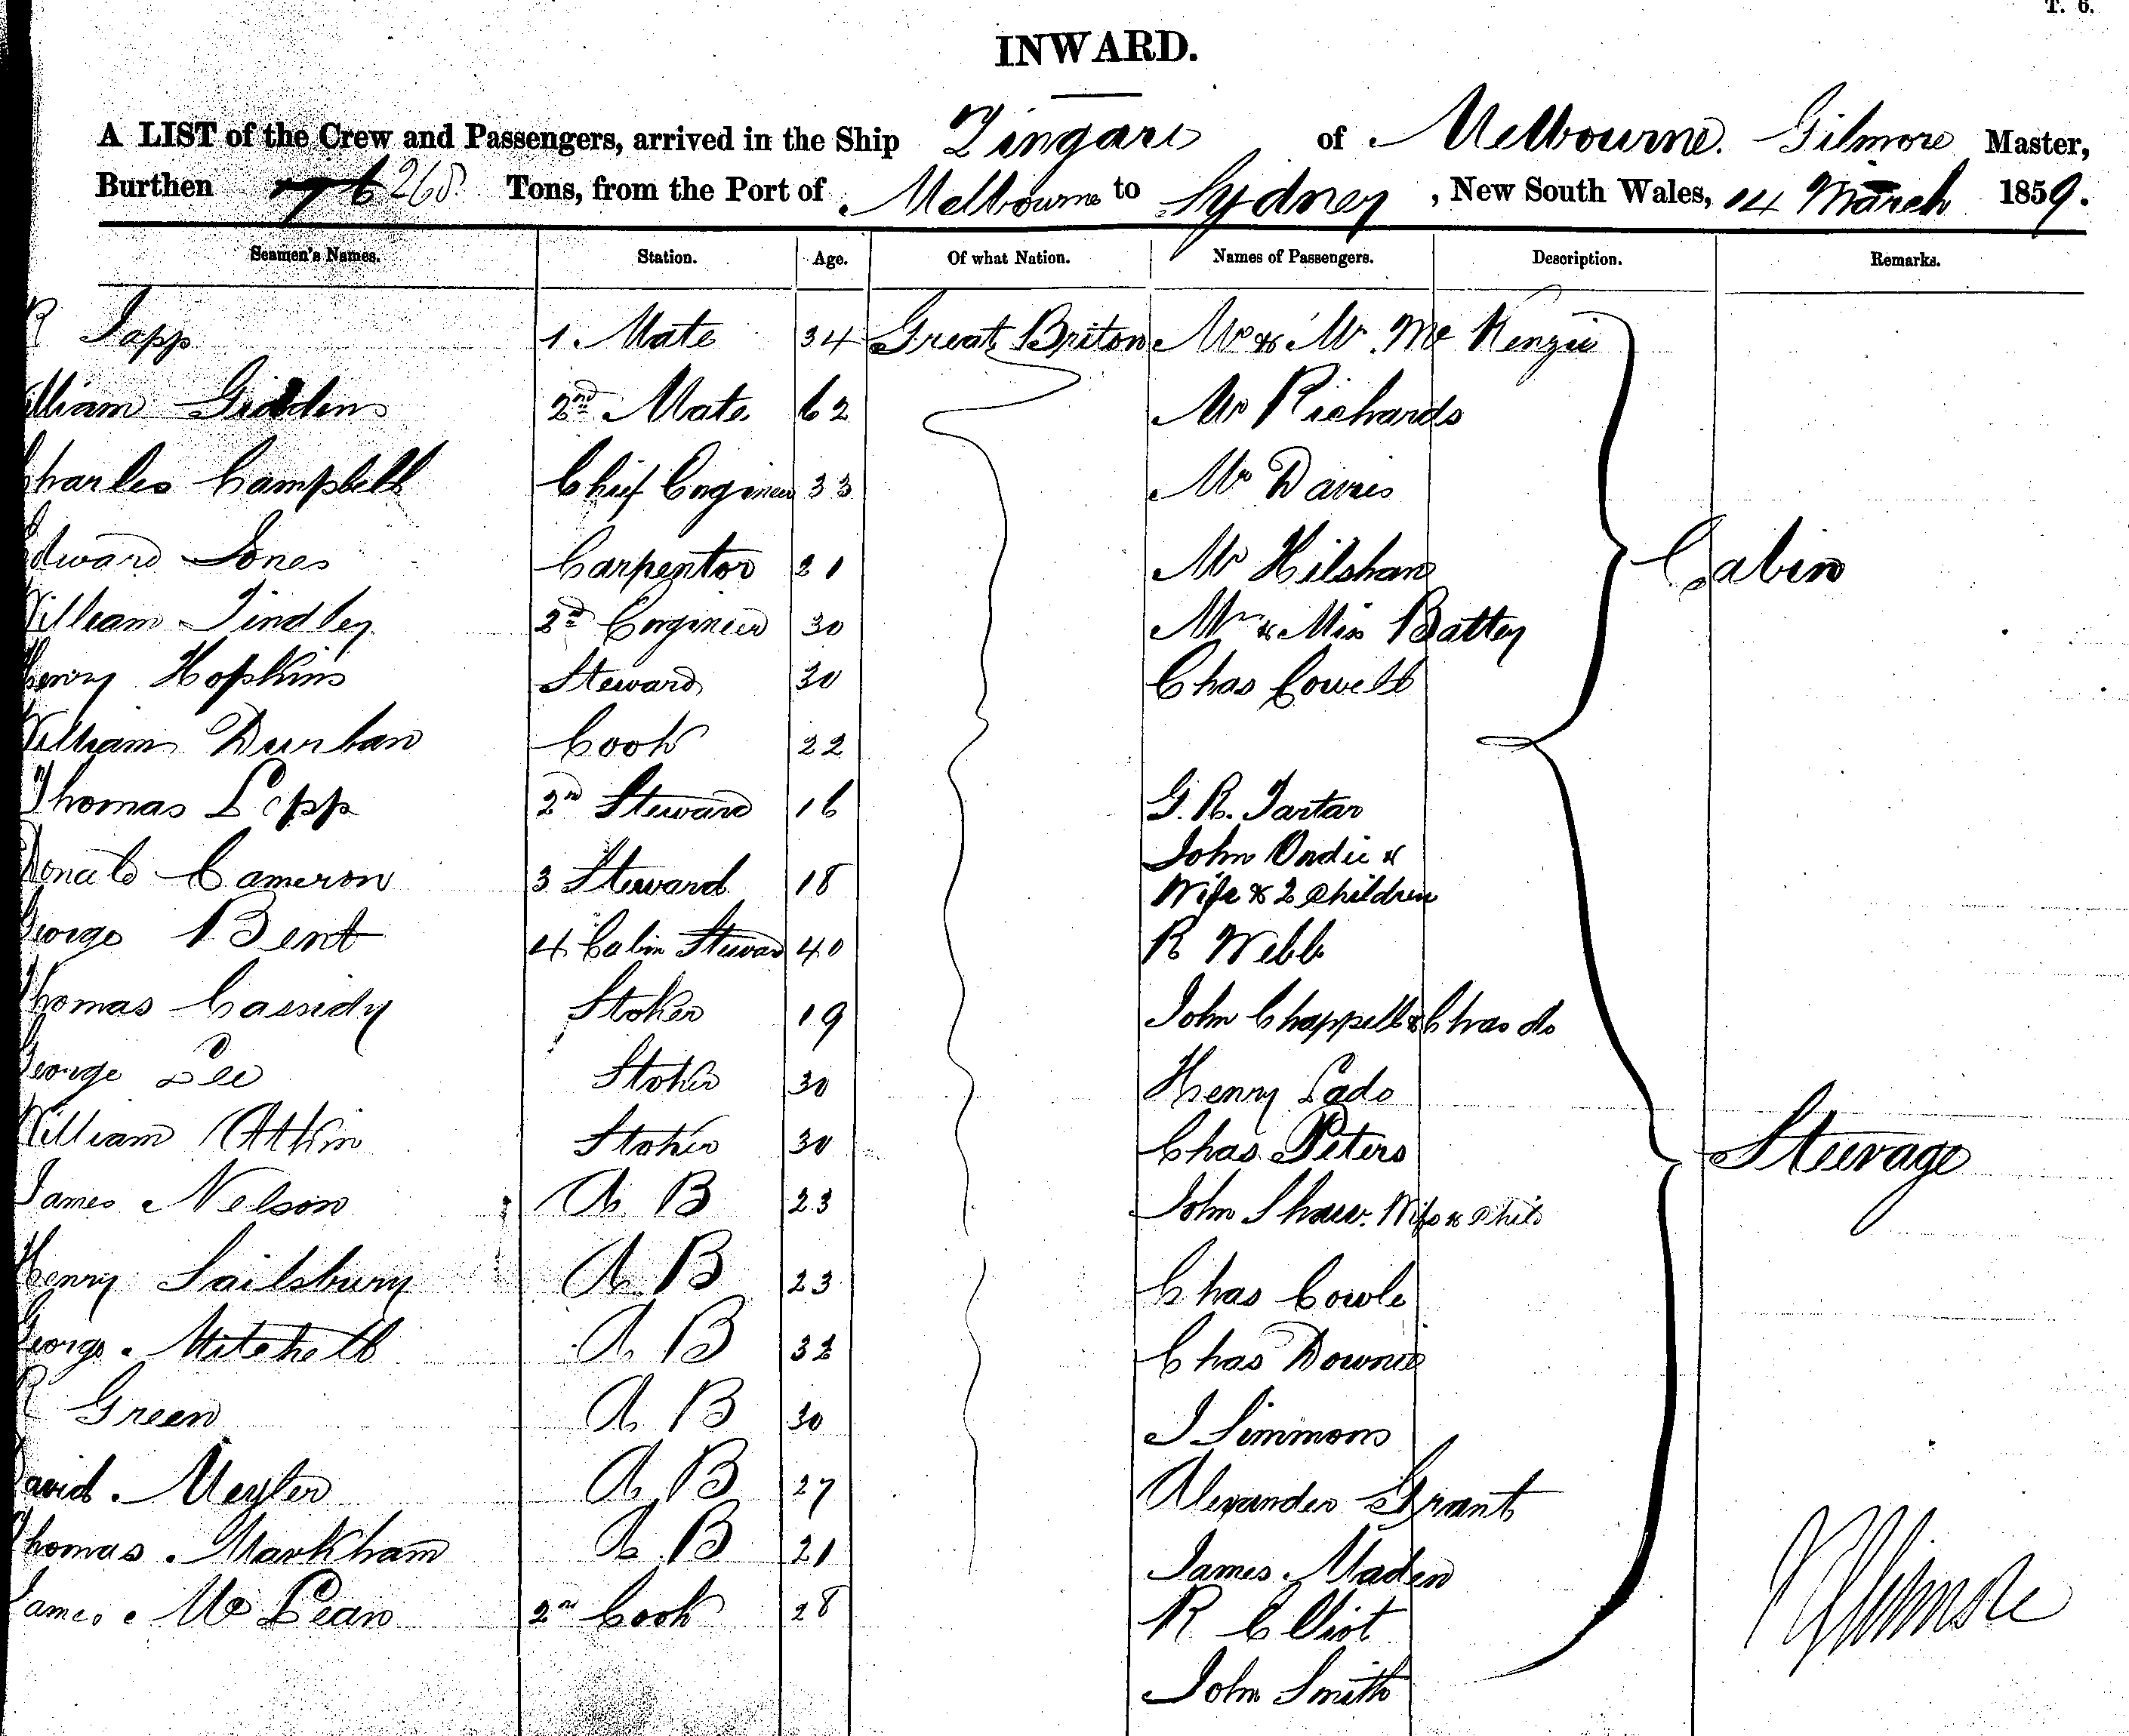 T. 6.
INWARD.
A LIST of the Crew and Passengers, arrived in the Ship Zingari of Melbourne. Gilmore Master,
Burthen 268 Tons, from the Port of Melbourne to Sydney, New South Wales, 14 March 1859.
Seamen's Names. Station. Age. Of what Nation. Names of Passengers. Description. Remarks.
R Japp 1. Mate 34 Great Briton Mr & Mr. Mc Kenzie
William 2nd Mate 62 Mr Richards
Charles Campbell Chief Engineer 33 Mr Davies
Edward Jones Carpentor 21 Mr Hilshan Cabin
William Tindley 2nd Engineer 30 Mr & Miss Battey
Henry Hopkins Steward 30 Chas Cowell
William Durban Cook 22
Thomas Lepp 2nd Steward 16 G. R. Tartar
John Ondie &
Donald Cameron 3 Steward 18 Wife & 2 Children
George Bent 4 Cabin Steward 40 R Webb
Thomas Cassidy Stoker 19 John Chappell & Chas do
George Lee Stoker 30 Henry Lado
William Atkin Stoker 30 Chas Peters Steerage
James Nelson A B 23 John Shaw. Wife & Child
Henry Sailsbury A B 23 Chas Cowle
George Mitchell A B 32 Chas Downie
R Green A B 30 J Simmons
David Meyler A B 27 Alexander Grant
Thomas Markham A B 21 James Maden
James Mc Lean 2nd Cook 28 R Elliot
Gilmore
John Smith